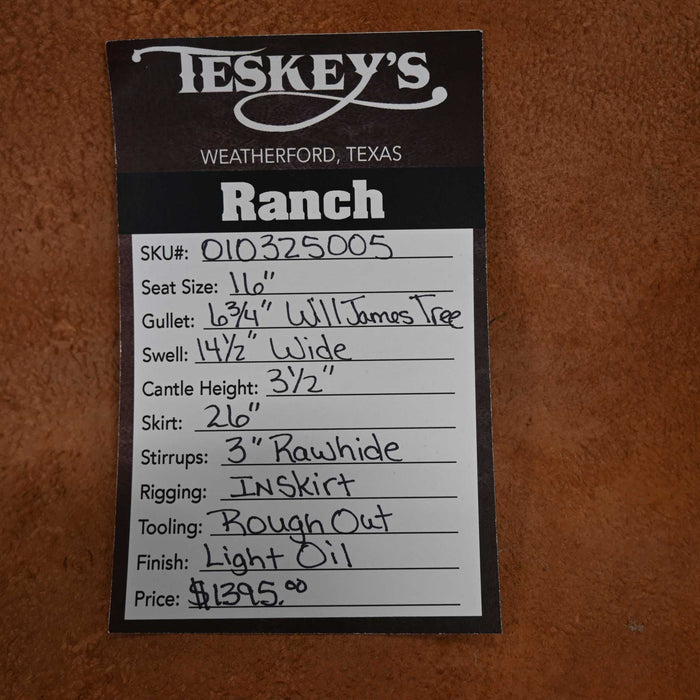 TESKEY'S
WEATHERFORD, TEXAS
Ranch
SKU#: 010325005
Seat Size: 16"
Gullet: 6 3/4" Will James Tree
Swell: 14 1/2" Wide
Cantle Height: 3 1/2"
Skirt: 26"
Stirrups: 3" Rawhide
Rigging: INSkirt
Tooling: Rough Out
Finish: Light Oil
Price: $1395.00